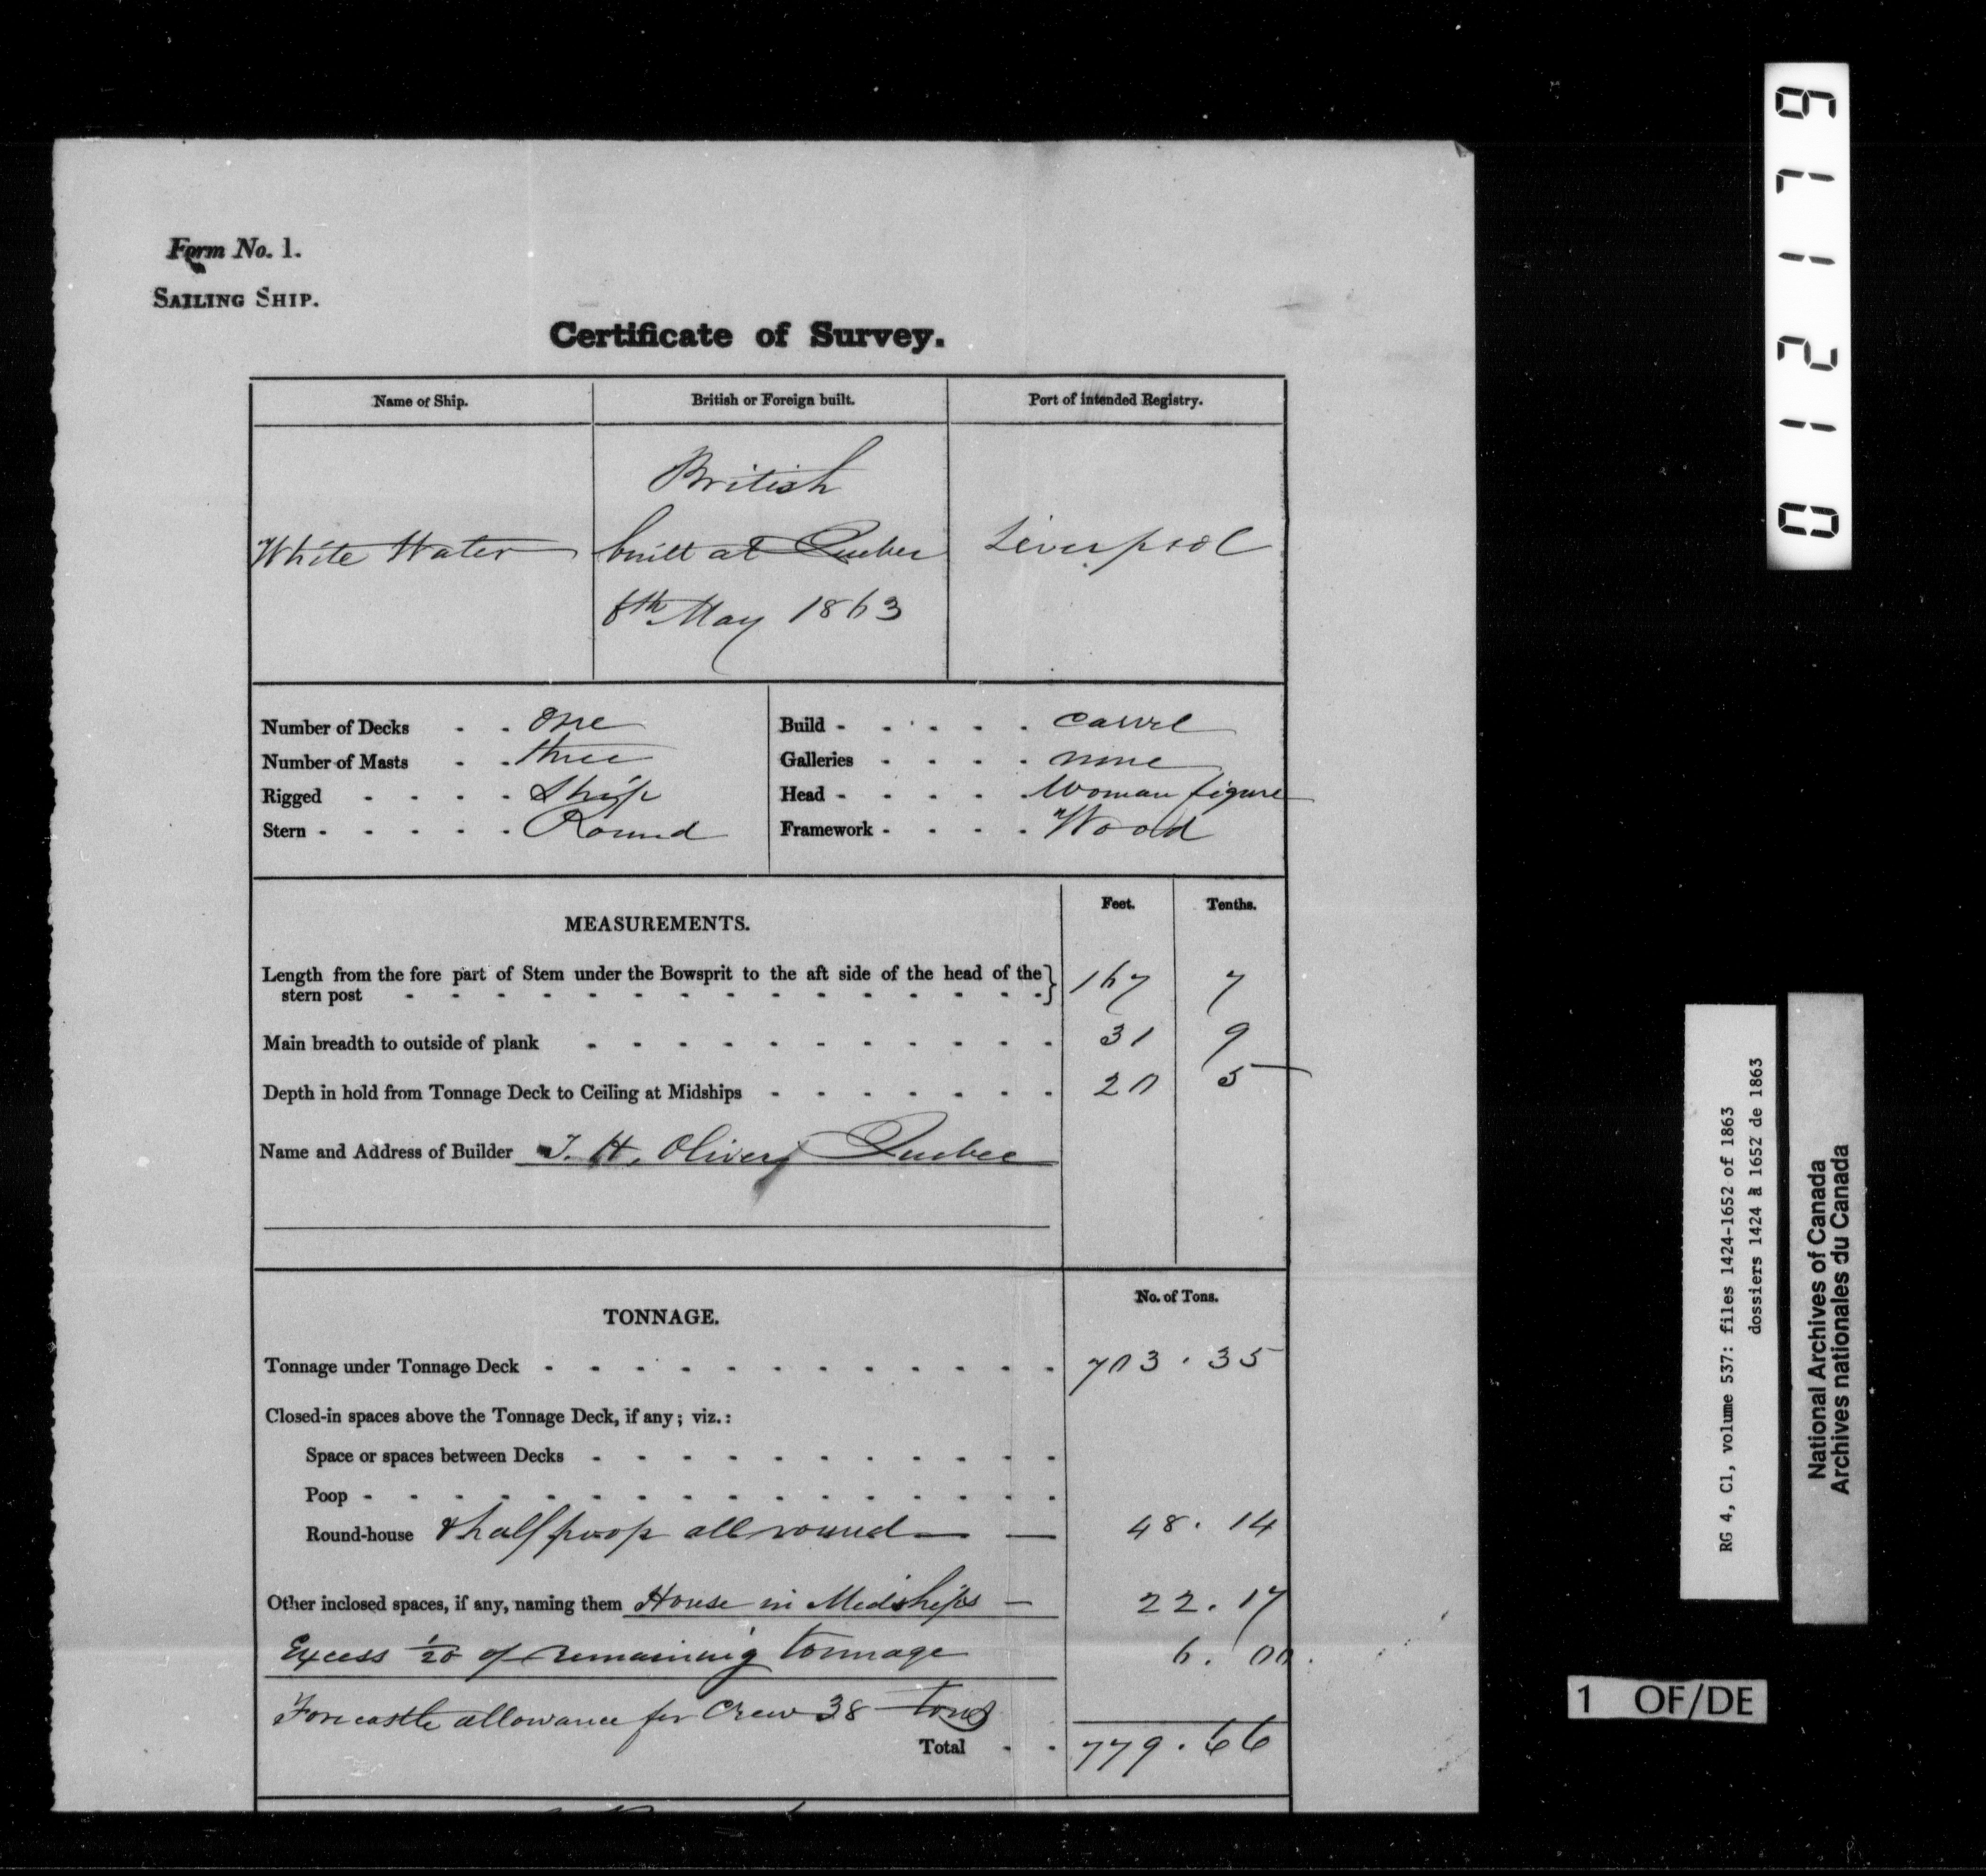 Form No. 1.
SAILING SHIP.
Certificate of Survey.
Name of Ship. British or Foreign built. Port of intended Registry.
British
White Water built at Quebec Liverpool
8th May 1863
Number of Decks - - one Build - - - - - carvel
Number of Masts - - three Galleries - - - - none
Rigged - - - - Ship Head - - - - - Woman figure
Stern - - - - - Round Framework - - - - Wood
Feet. Tenths.
MEASUREMENTS.
Length from the fore part of Stem under the Bowsprit to the aft side of the head of the } 167 7
stern post
Main breadth to outside of plank 31 9
Depth in hold from Tonnage Deck to Ceiling at Midships 20 5
Name and Address of Builder T. H. Oliver Quebec
No. of Tons.
TONNAGE.
Tonnage under Tonnage Deck 703 . 35
Closed-in spaces above the Tonnage Deck, if any; viz.:
Space or spaces between Decks
Poop
Round-house & half poop all round 48 . 14
Other inclosed spaces, if any, naming them House in Midships 22 . 17
Excess 1/20 of remaining tonnage 6 . 00
Forecastle allowance for Crew 38 tons
Total 779 . 66
012179
RG 4, C1, volume 537: files 1424-1652 of 1863
dossiers 1424 à 1652 de 1863
National Archives of Canada
Archives nationales du Canada
1 OF/DE